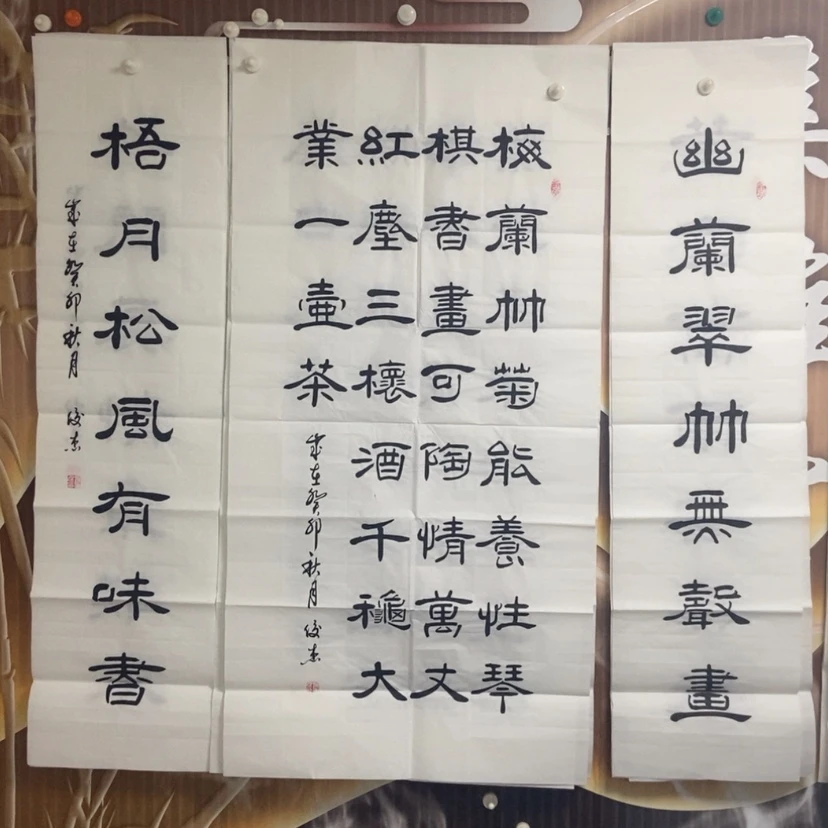 幽蘭翠竹無聲畫
梅蘭竹菊能養性琴
棋書畫可陶情萬丈
紅塵三櫰酒千龝大
業一壺茶
歲在癸卯秋月
梧月松風有味書
歲在癸卯秋月